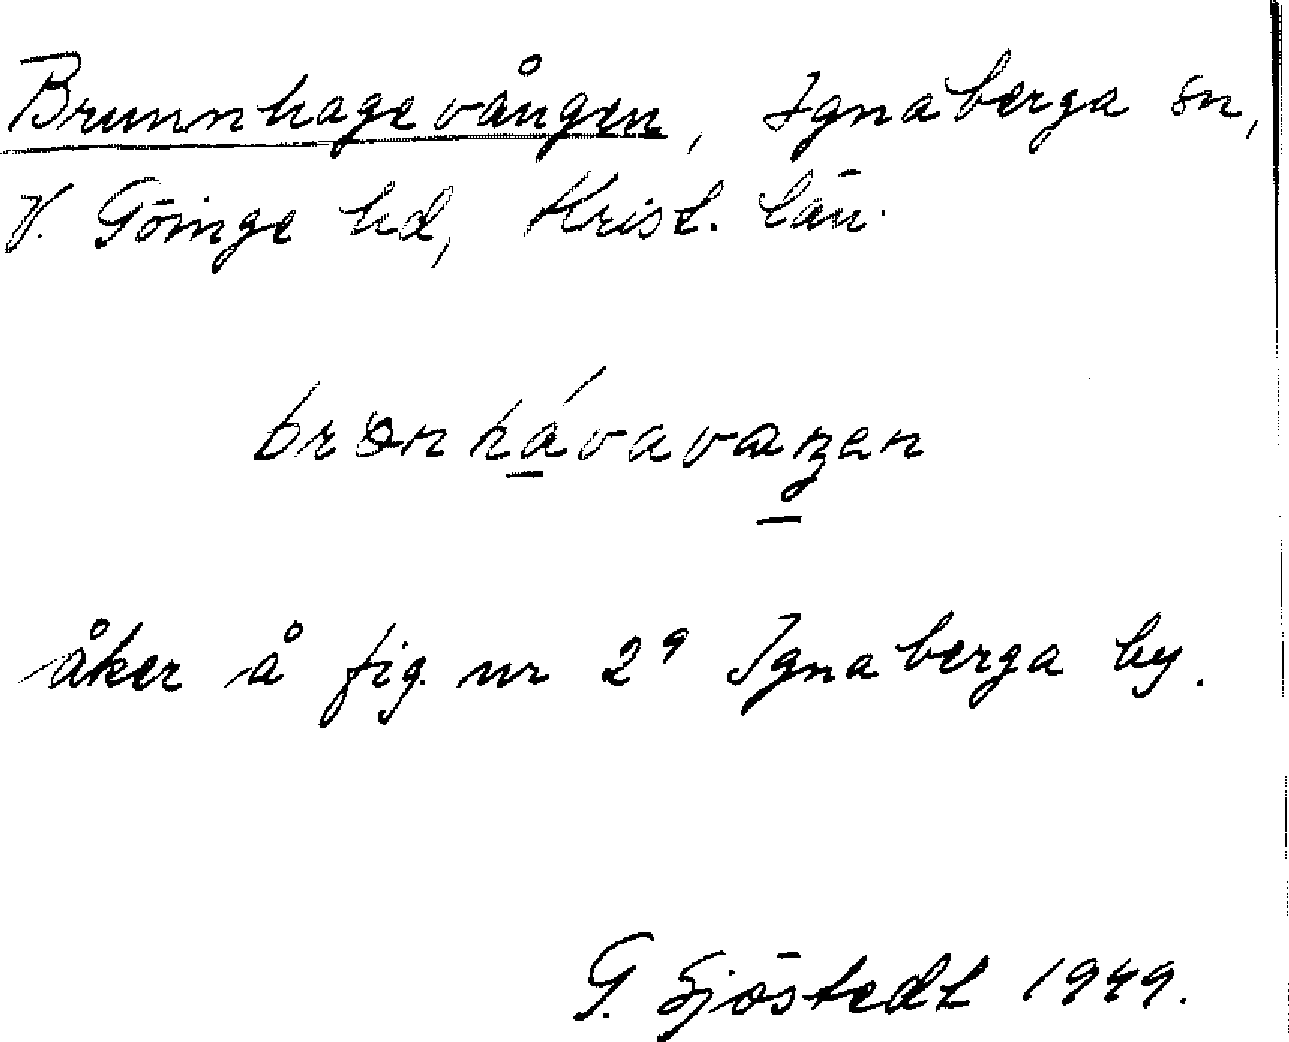 Brunnhagevången, Ignaberga sn,
V. Göinge hd, Krist. län.
åker å fig. nr 2⁹ Ignaberga by.
G. Sjöstedt 1949.